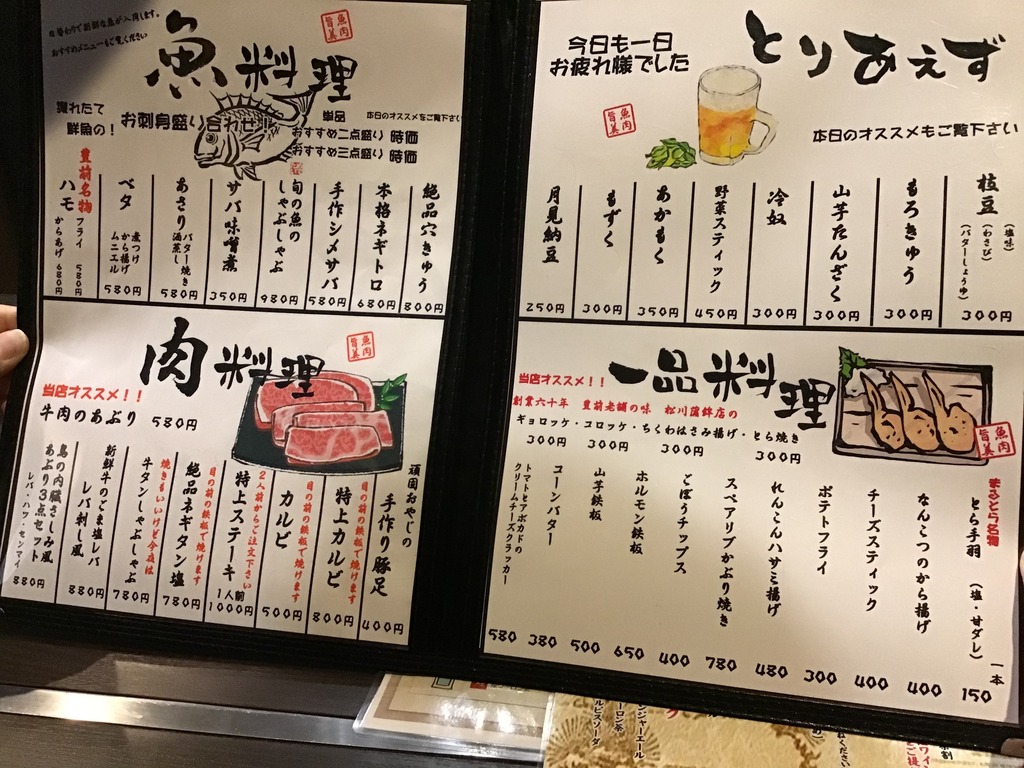 とりあえず
今日も一日
お疲れ様でした
魚肉
旨美
本日のオススメもご覧下さい
枝豆 (塩味) (わさび) (バターしょうゆ) 300円
もろきゅう 300円
山芋たんざく 300円
冷奴 300円
野菜スティック 450円
あかもく 350円
もずく 300円
月見納豆 250円
一品料理
魚肉
旨美
当店オススメ!!
創業六十年 豊前老舗の味 松川蒲鉾店の
ギョロッケ・コロッケ・ちくわはさみ揚げ・とら焼き
300円 300円 300円 300円
とら手羽 (塩・甘ダレ) 一本 150
なんこつのから揚げ 400
チーズスティック 400
ポテトフライ 300
れんこんハサミ揚げ 480
スペアリブかぶり焼き 780
ごぼうチップス 400
ホルモン鉄板 650
山芋鉄板 500
コーンバター 380
トマトとアボカドの
クリームチーズクラッカー 580
魚料理
魚肉
旨美
日替わりで新鮮な魚が入荷します。
おすすめメニューもご覧ください
獲れたて
鮮魚の!
お刺身盛り合わせ
単品 本日のオススメをご覧下さい
おすすめ二点盛り 時価
おすすめ三点盛り 時価
絶品穴きゅう 800円
本格ネギトロ 680円
手作シメサバ 580円
旬の魚の
しゃぶしゃぶ 980円
サバ味噌煮 350円
あさり バター焼き 酒蒸し 580円
ベタ 煮つけ から揚げ ムニエル 580円
豊前名物
ハモ フライ 580円 からあげ 680円
肉料理
魚肉
旨美
当店オススメ!!
牛肉のあぶり 580円
頑固おやじの
手作り豚足 400円
目の前の鉄板で焼けます
特上カルビ 800円
目の前の鉄板で焼けます
カルビ 500円
2人前からご注文下さい
特上ステーキ 1人前 1000円
目の前の鉄板で焼けます
絶品ネギタン塩 780円
焼きもいいけど今夜は
牛タンしゃぶしゃぶ 780円
新鮮牛のごま塩レバ
レバ刺し風 880円
鳥の内臓さしみ風
あぶり3点セット
レバ・ハツ・センマイ 880円